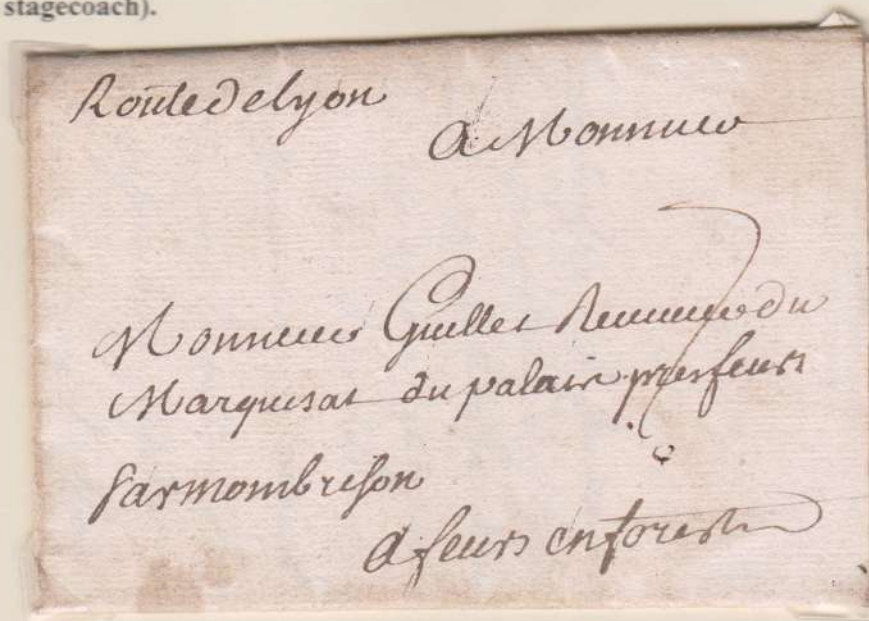 stagecoach).
Route de lyon
A Monsieur
Monsieur Guillet du
Marquisat du palais pres feurs
Par mombrison
A feurs en forest